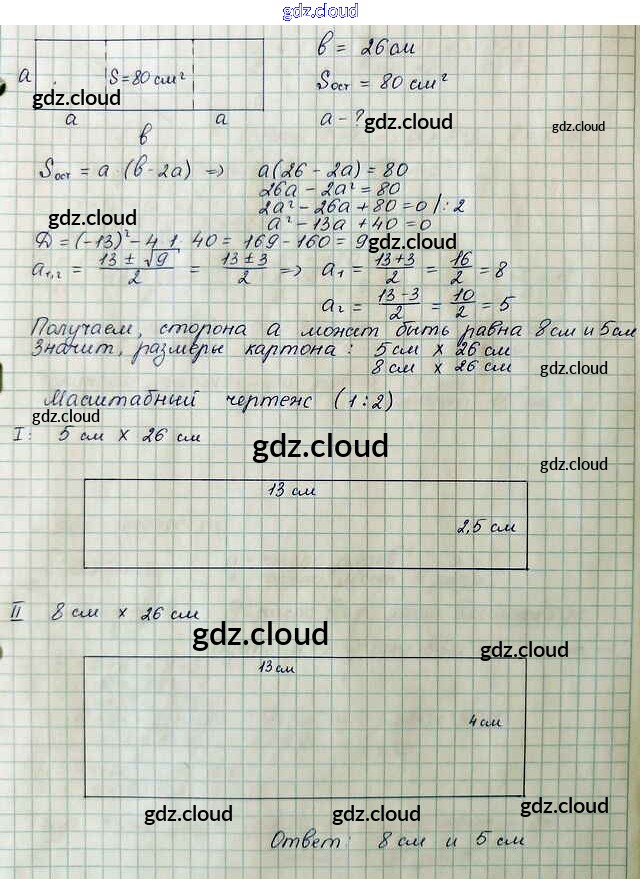 gdz.cloud
в = 26 см
а S = 80 см² Sост = 80 см²
gdz.cloud
а а а - ? gdz.cloud gdz.cloud
в
Sост = а · (в - 2а) => а(26 - 2а) = 80
26а - 2а² = 80
2а² - 26а + 80 = 0 /: 2
gdz.cloud
а² - 13а + 40 = 0
Д = (-13)² - 4 · 1 · 40 = 169 - 160 = 9 gdz.cloud
а₁,₂ = (13 ± √9)/2 = (13 ± 3)/2 => а₁ = (13 + 3)/2 = 16/2 = 8
а₂ = (13 - 3)/2 = 10/2 = 5
Получаем, сторона а может быть равна 8 см и 5 см
Значит, размеры картона: 5 см х 26 см
8 см х 26 см gdz.cloud
Масштабный чертеж (1:2)
gdz.cloud
I: 5 см х 26 см
gdz.cloud
gdz.cloud
13 см
2,5 см
II 8 см х 26 см
gdz.cloud
gdz.cloud
13 см
4 см
gdz.cloud gdz.cloud gdz.cloud
Ответ: 8 см и 5 см